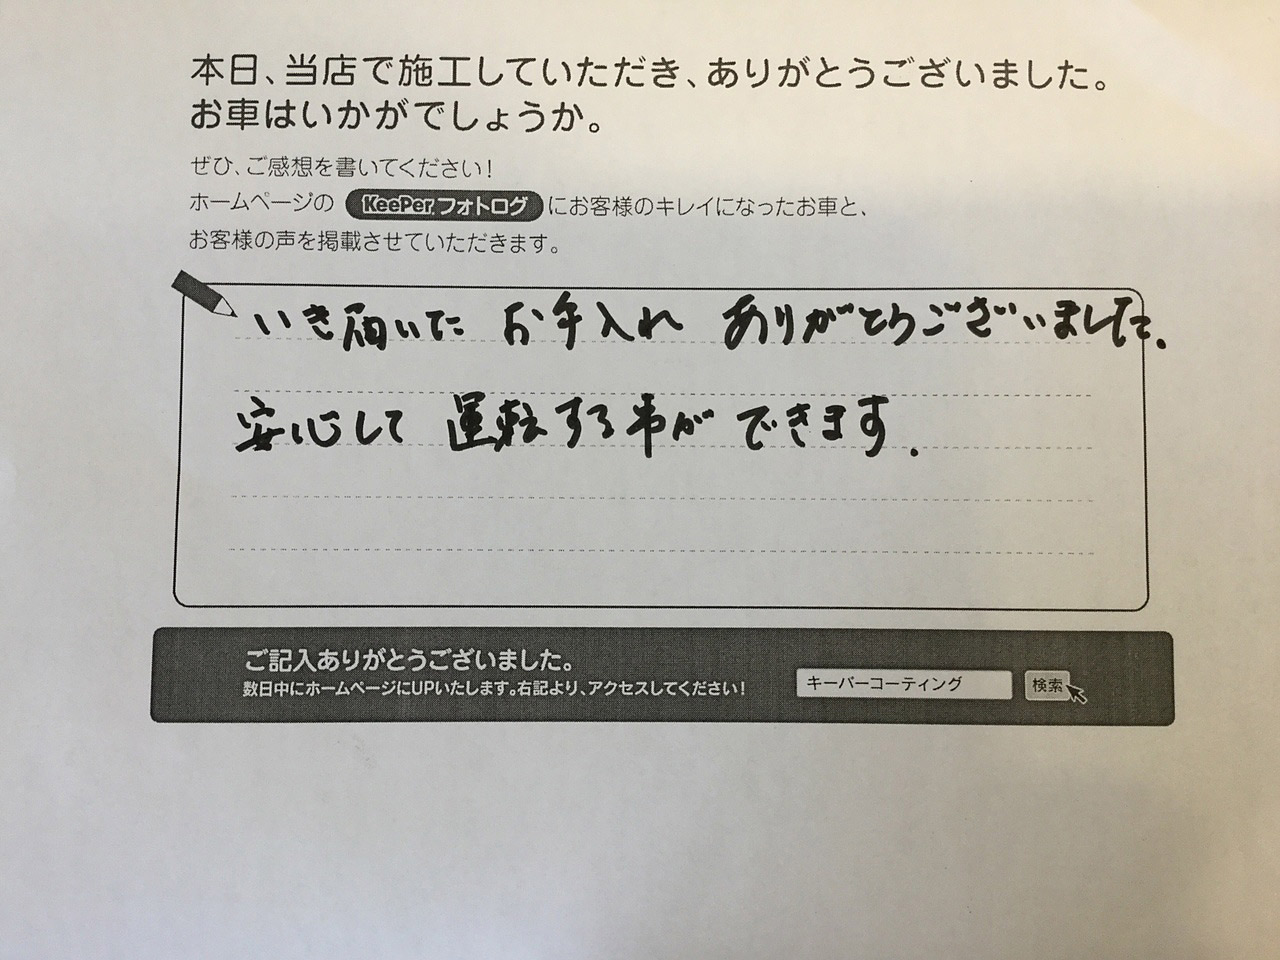 本日、当店で施工していただき、ありがとうございました。
お車はいかがでしょうか。
ぜひ、ご感想を書いてください!
ホームページの KeePer フォトログ にお客様のキレイになったお車と、
お客様の声を掲載させていただきます。
いき届いた お手入れ ありがとうございました.
安心して 運転する事が できます.
ご記入ありがとうございました。
数日中にホームページにUPいたします。右記より、アクセスしてください!
キーパーコーティング 検索